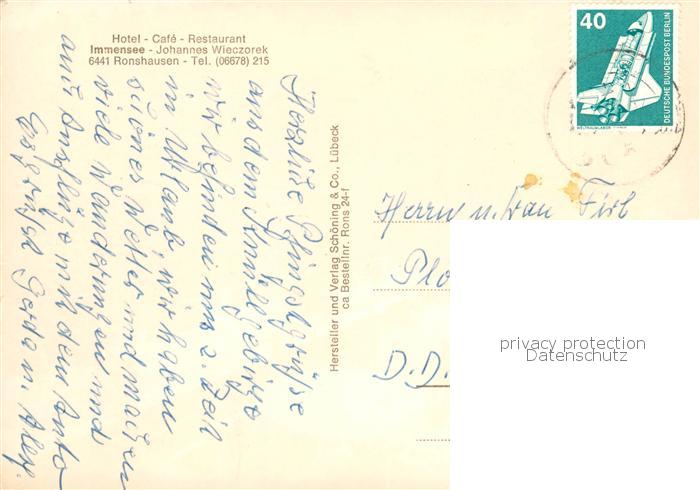 Hotel - Café - Restaurant
Immensee - Johannes Wieczorek
6441 Ronshausen - Tel. (06678) 215
Herzliche Pfingstgrüße
aus dem Knüllgebirge
wir befinden uns z. Zeit
im Urlaub, wir haben
schönes Wetter und machen
viele Wanderungen und
auch Ausflüge mit dem Auto
Es grüßt Gerda u. Alex.
Hersteller und Verlag Schöning & Co., Lübeck
ca Bestellnr. Rons 24-f
40
DEUTSCHE BUNDESPOST BERLIN
WELTRAUMLABOR
Herrn u. Frau
Plo
D.D.
privacy protection
Datenschutz